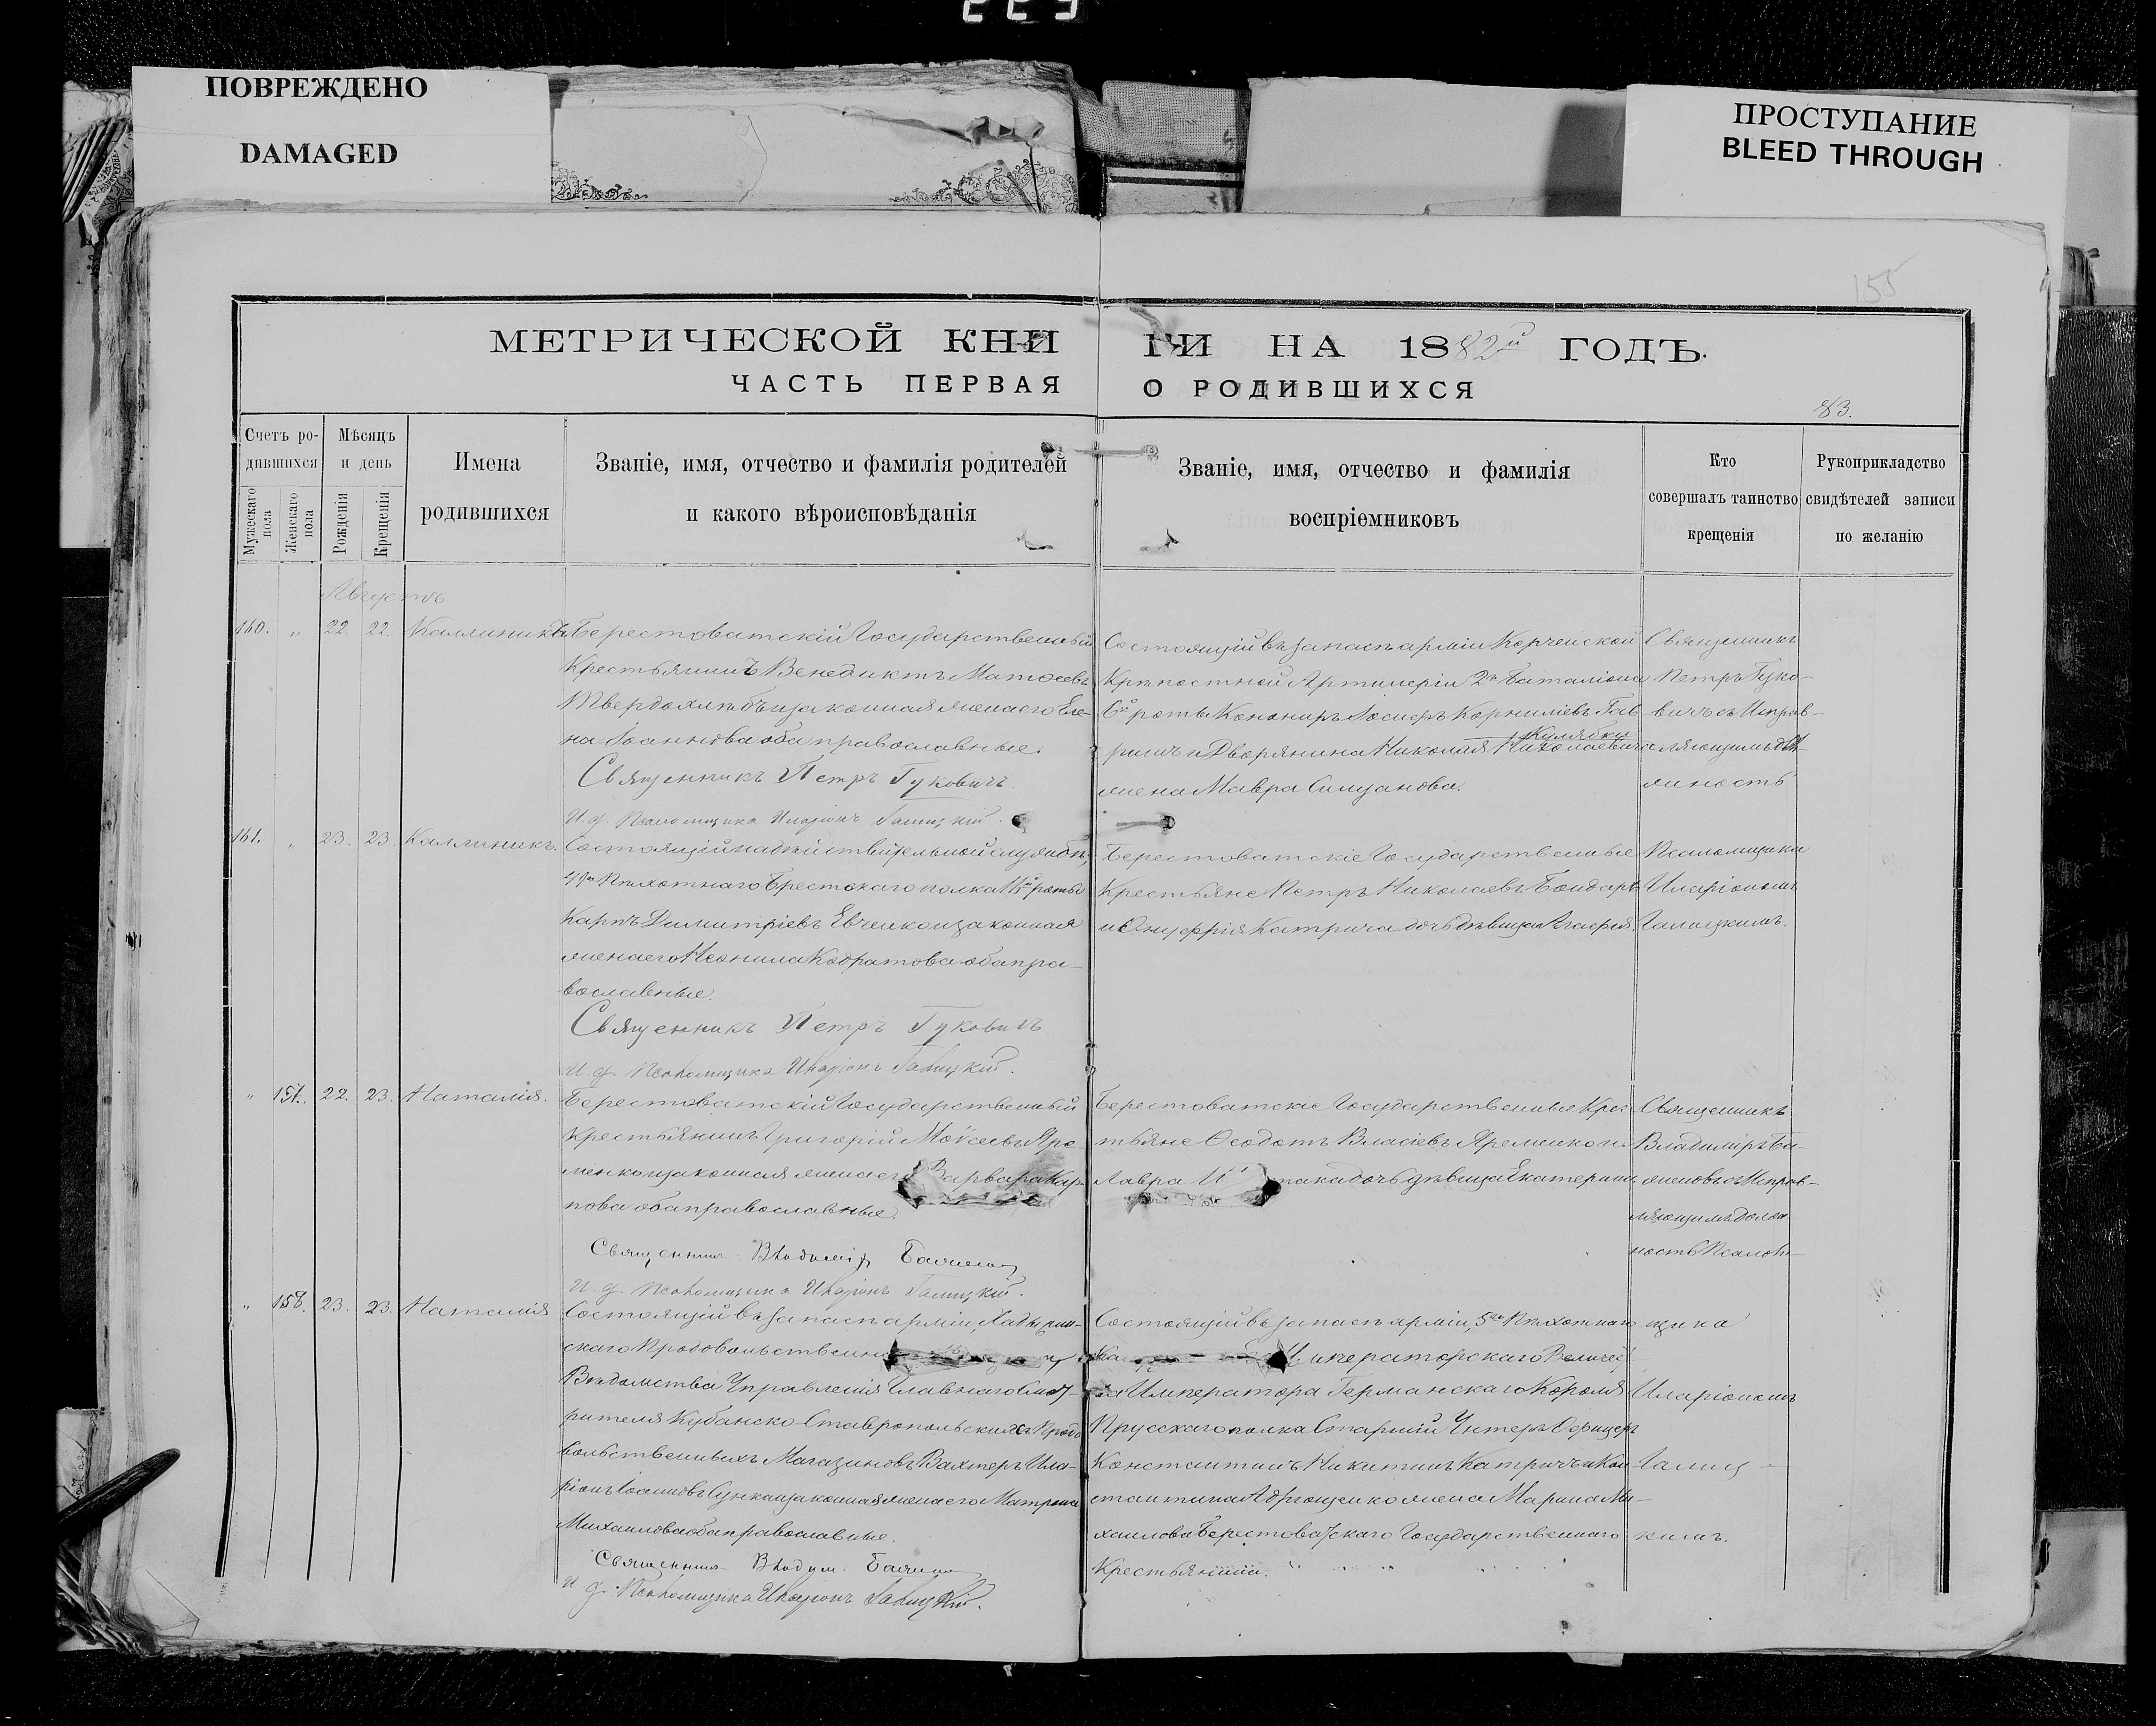 ПОВРЕЖДЕНО
DAMAGED
ПРОСТУПАНИЕ
BLEED THROUGH
155
МЕТРИЧЕСКОЙ КНИГИ НА 1882й ГОДЪ.
ЧАСТЬ ПЕРВАЯ О РОДИВШИХСЯ
83.
Счетъ родившихся
Мужескаго пола
Женскаго пола
Мѣсяцъ и день
Рожденія
Крещенія
Имена родившихся
Званіе, имя, отчество и фамилія родителей
и какого вѣроисповѣданія
Званіе, имя, отчество и фамилія
воспріемниковъ
Кто
совершалъ таинство
крещенія
Рукоприкладство
свидѣтелей записи
по желанію
Августъ
160. „ 22. 22. Каллиникъ
Берестоватскій Государственный
Крестьянинъ Венедиктъ Матѳеевъ
Твердохлѣбъ и законная жена его Еле-
на Іоаннова оба православные.
Священникъ Петръ Гуковичъ
И. д. Псаломщика Иларіонъ Галицкій.
Состоящій въ запасѣ арміи Керченской
Крѣпостной Артилеріи 2го Баталіона
6й роты Канониръ Іосифъ Корниліевъ Гав
ришъ и Дворянина Николая Николаевича
Кулябки
жена Мавра
Священникъ
Петръ Гуко-
вичъ съ Исправ-
ляющимъ долж
жность
161. „ 23. 23. Каллиникъ.
Состоящій на дѣйствительной службѣ,
49го Пѣхотнаго Брестскаго полка 11й роты
Карпъ Димитріевъ Евченко и законная
жена его Неонила Кодратова оба пра-
вославные.
Священникъ Петръ Гуковичъ
И. д. Псаломщика Иларіонъ Галицкій.
Берестоватскіе Государственные
Крестьяне Петръ Николаевъ Бондарь
и Онуфрія Катрича дочь дѣвица Агафія.
Псаломщика
Иларіономъ
Галицкимъ.
„ 157. 22. 23. Наталія.
Берестоватскій Государственный
Крестьянинъ Григорій Моѵсеевъ Яре-
менко и законная жена его Варвара Кар-
пова оба православные.
Священникъ Владиміръ
И. д. Псаломщика Иларіонъ Галицкій.
Берестоватскіе Государственные Крес
тьяне Ѳеодотъ Власіевъ Яременко и
Лавра дочь дѣвица Екатерина
Священникъ
Владиміръ Ба-
съ Исправ-
ляющимъ долж
ность Псалом-
„ 158. 23. 23. Наталія
Состоящій въ запасѣ арміи,
скаго Продовольственн
Вѣдомства Управленія Главнаго Смот-
рителя Кубанско-Ставропольскихъ Продо
вольственныхъ Магазиновъ Вахтеръ Ила-
ріонъ Іоанновъ и законная жена его Матрона
Михаилова оба православные.
Священникъ Владим.
И. д. Псаломщика Иларіонъ Галицкій.
Состоящій въ запасѣ арміи, 5го Пѣхотнаго
Ка Императорскаго Величес
Императора Германскаго Короля
Прусскаго полка Старшій Унтеръ Офицеръ
Константинъ Никитинъ Катричъ и Кон
стантина жена Марина Ми-
хаилова Берестоватскаго Государственнаго
Крестьянина.
щика
Иларіономъ
Галиц-
кимъ.